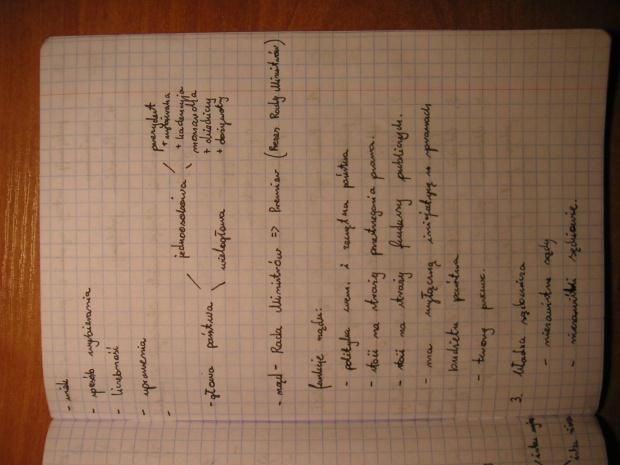 - wiek
- sposób wybierania
- liczebność
- uprawnienia
-
prezydent
+ wybieralna
jednoosobowa + kadencyja
monarcha
- głowa państwa + dziedziczny
wielogłowa + dożywotny
- rząd - Rada Ministrów => Premier (Prezes Rady Ministrów)
funkcje rządu:
- polityka wewn. i zewnętrzna państwa
- stoi na straży przestrzegania prawa.
- stoi na straży funduszy publicznych.
- ma wyłączną inicjatywę w sprawach
budżetu państwa
- tworzy prawo.
3. Władza sądownicza
- niezawisłe sądy
- niezawiśli sędziowie.